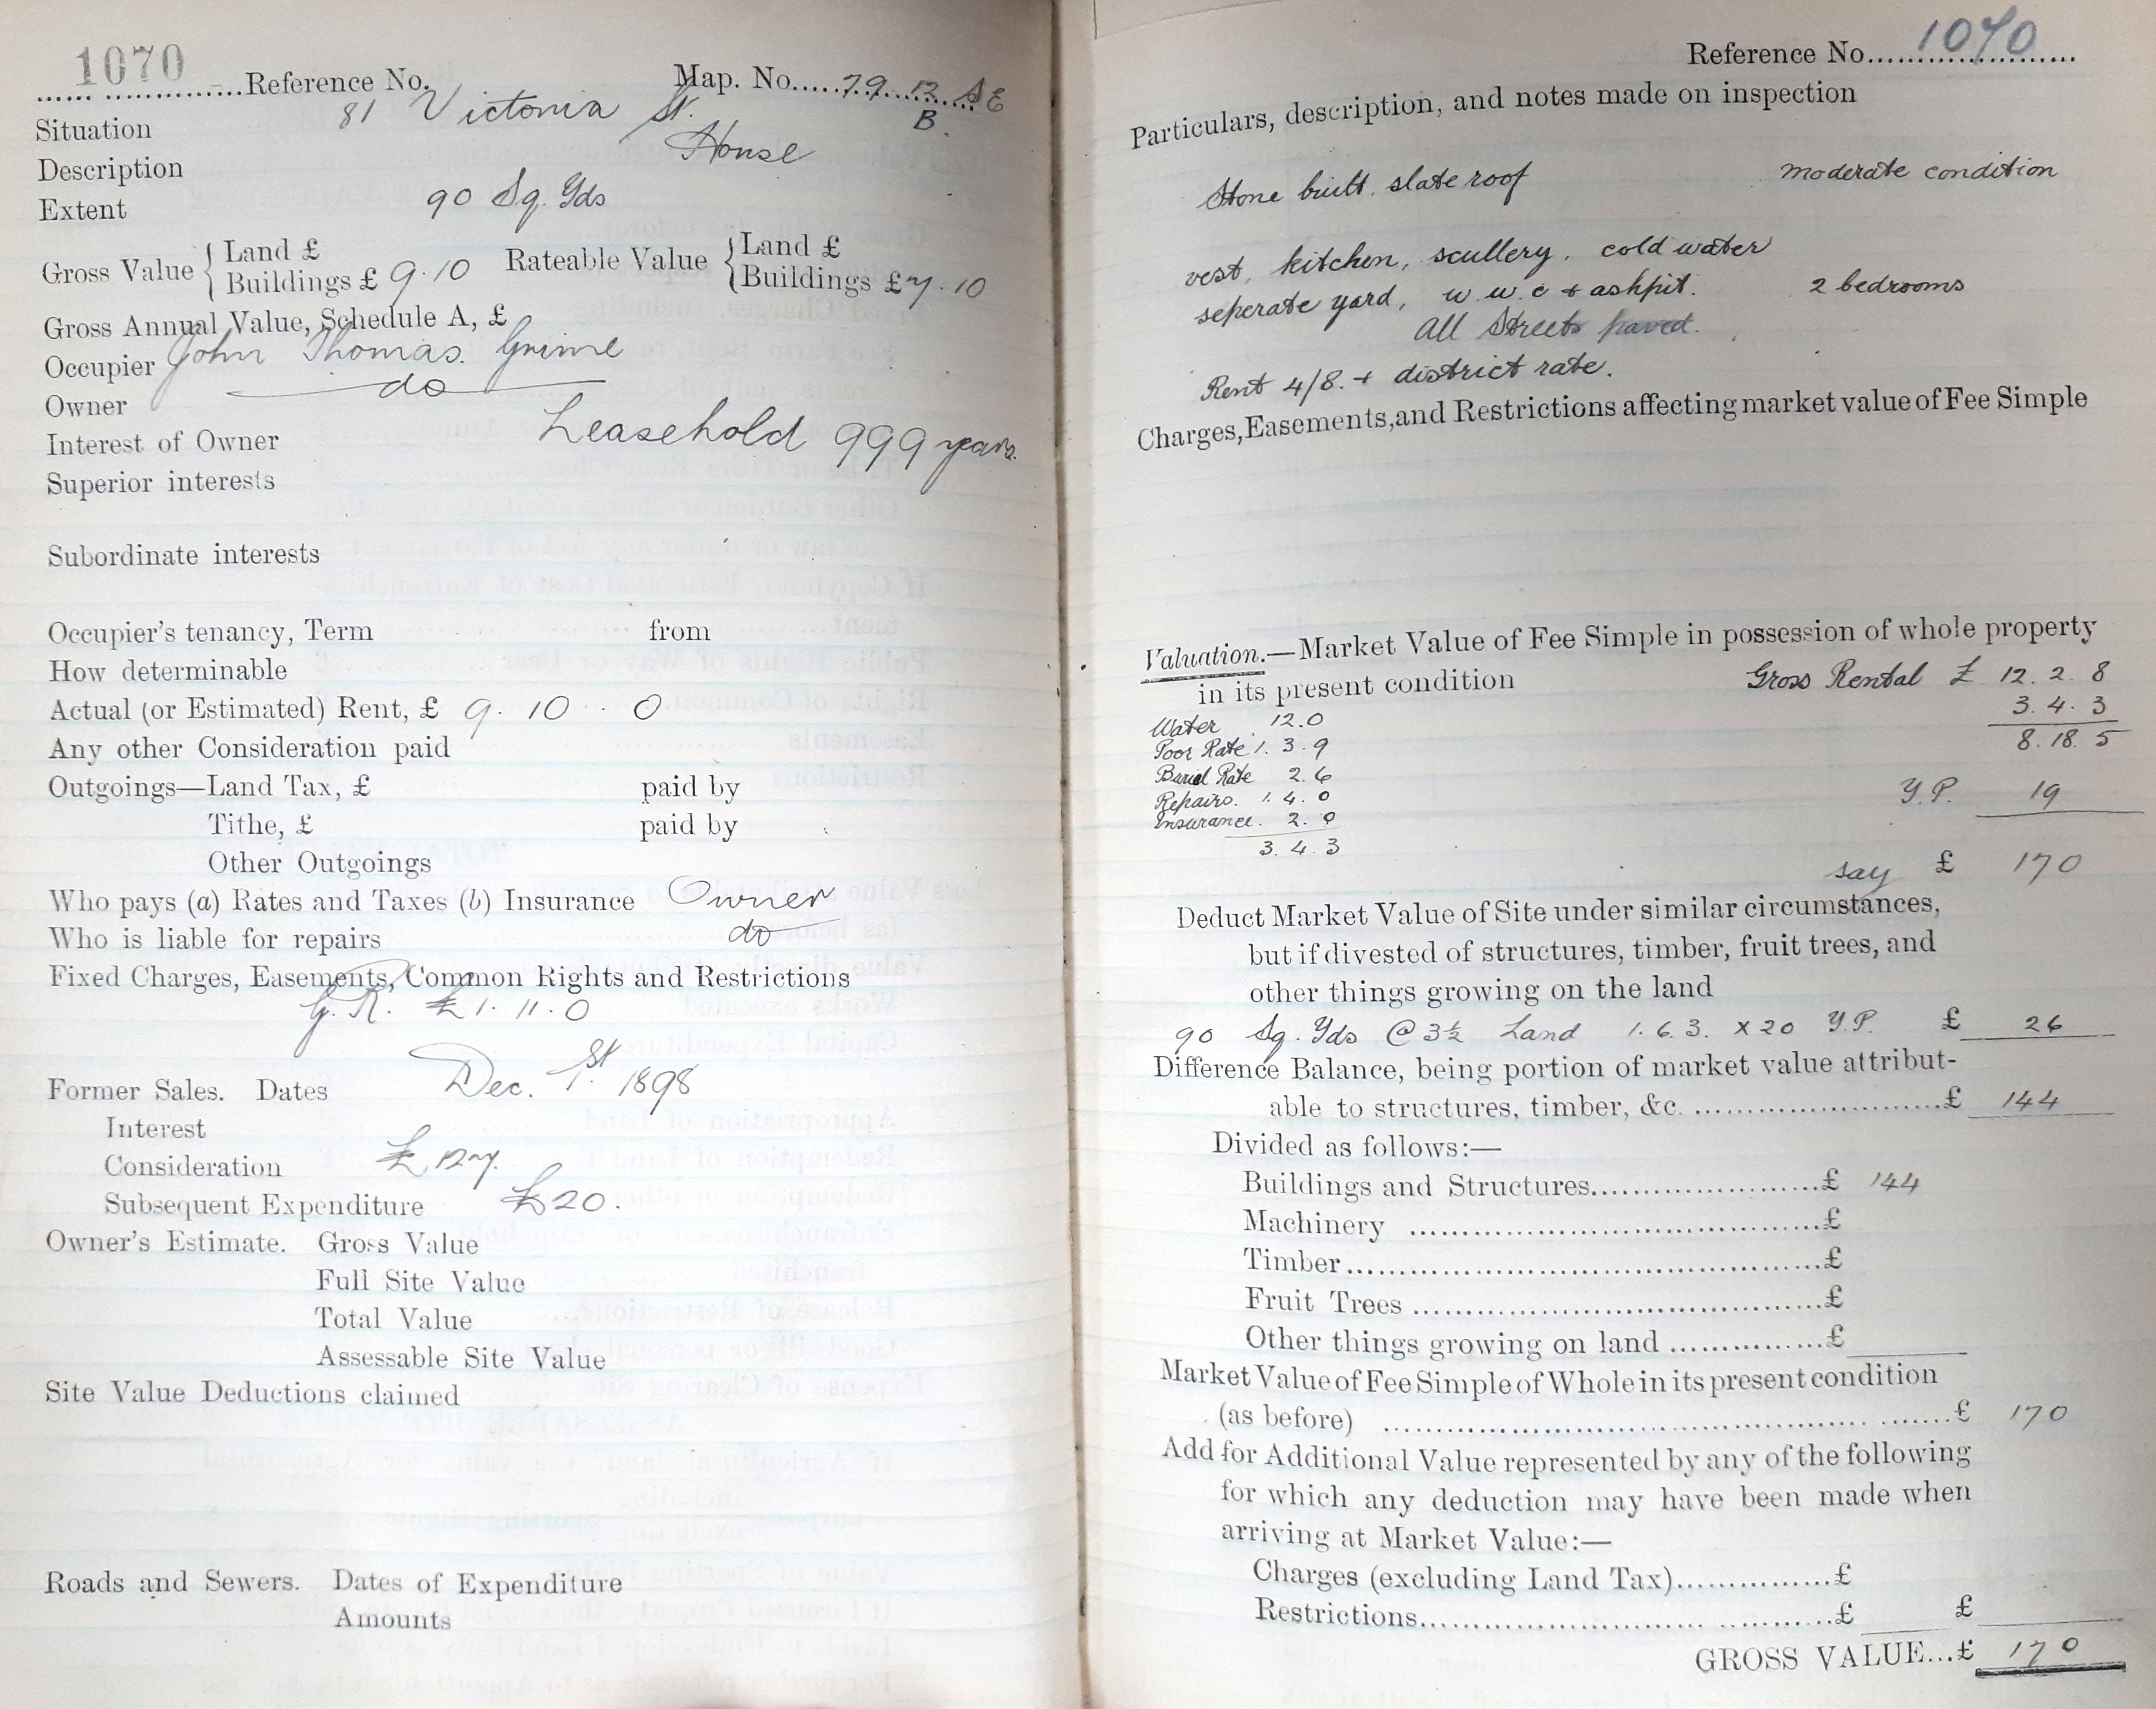 1070 Reference No. Map. No. 79 12 SE
B.
Situation 81 Victoria St.
Description House
Extent 90 Sq. Yds
Gross Value { Land £ Rateable Value { Land £
Buildings £ 9.10 Buildings £ 7.10
Gross Annual Value, Schedule A, £
Occupier John Thomas Grime
Owner do
Interest of Owner Leasehold 999 years.
Superior interests
Subordinate interests
Occupier's tenancy, Term from
How determinable
Actual (or Estimated) Rent, £ 9. 10. 0
Any other Consideration paid
Outgoings—Land Tax, £ paid by
Tithe, £ paid by
Other Outgoings
Who pays (a) Rates and Taxes (b) Insurance Owner
Who is liable for repairs do
Fixed Charges, Easements, Common Rights and Restrictions
G.R. £1. 11. 0
Former Sales. Dates Dec. 1st 1898
Interest
Consideration £127.
Subsequent Expenditure £20.
Owner's Estimate. Gross Value
Full Site Value
Total Value
Assessable Site Value
Site Value Deductions claimed
Roads and Sewers. Dates of Expenditure
Amounts
Reference No. 1070
Particulars, description, and notes made on inspection
Stone built. slate roof moderate condition
vest, kitchen, scullery, cold water
seperate yard, w.w.c + ashpit. 2 bedrooms
All Streets paved.
Rent 4/8. + district rate.
Charges, Easements, and Restrictions affecting market value of Fee Simple
Valuation.—Market Value of Fee Simple in possession of whole property
in its present condition Gross Rental £ 12. 2. 8
Water 12.0 3. 4. 3
Poor Rate 1. 3. 9 8. 18. 5
Burial Rate 2. 6
Repairs. 1. 4. 0 Y.P. 19
Insurance. 2. 0
3. 4. 3
say £ 170
Deduct Market Value of Site under similar circumstances,
but if divested of structures, timber, fruit trees, and
other things growing on the land
90 Sq. Yds @ 3½ Land 1. 6. 3. x 20 Y.P. £ 26
Difference Balance, being portion of market value attribut-
able to structures, timber, &c. £ 144
Divided as follows:—
Buildings and Structures £ 144
Machinery £
Timber £
Fruit Trees £
Other things growing on land £
Market Value of Fee Simple of Whole in its present condition
(as before) £ 170
Add for Additional Value represented by any of the following
for which any deduction may have been made when
arriving at Market Value:—
Charges (excluding Land Tax) £
Restrictions £ £
GROSS VALUE...£ 170